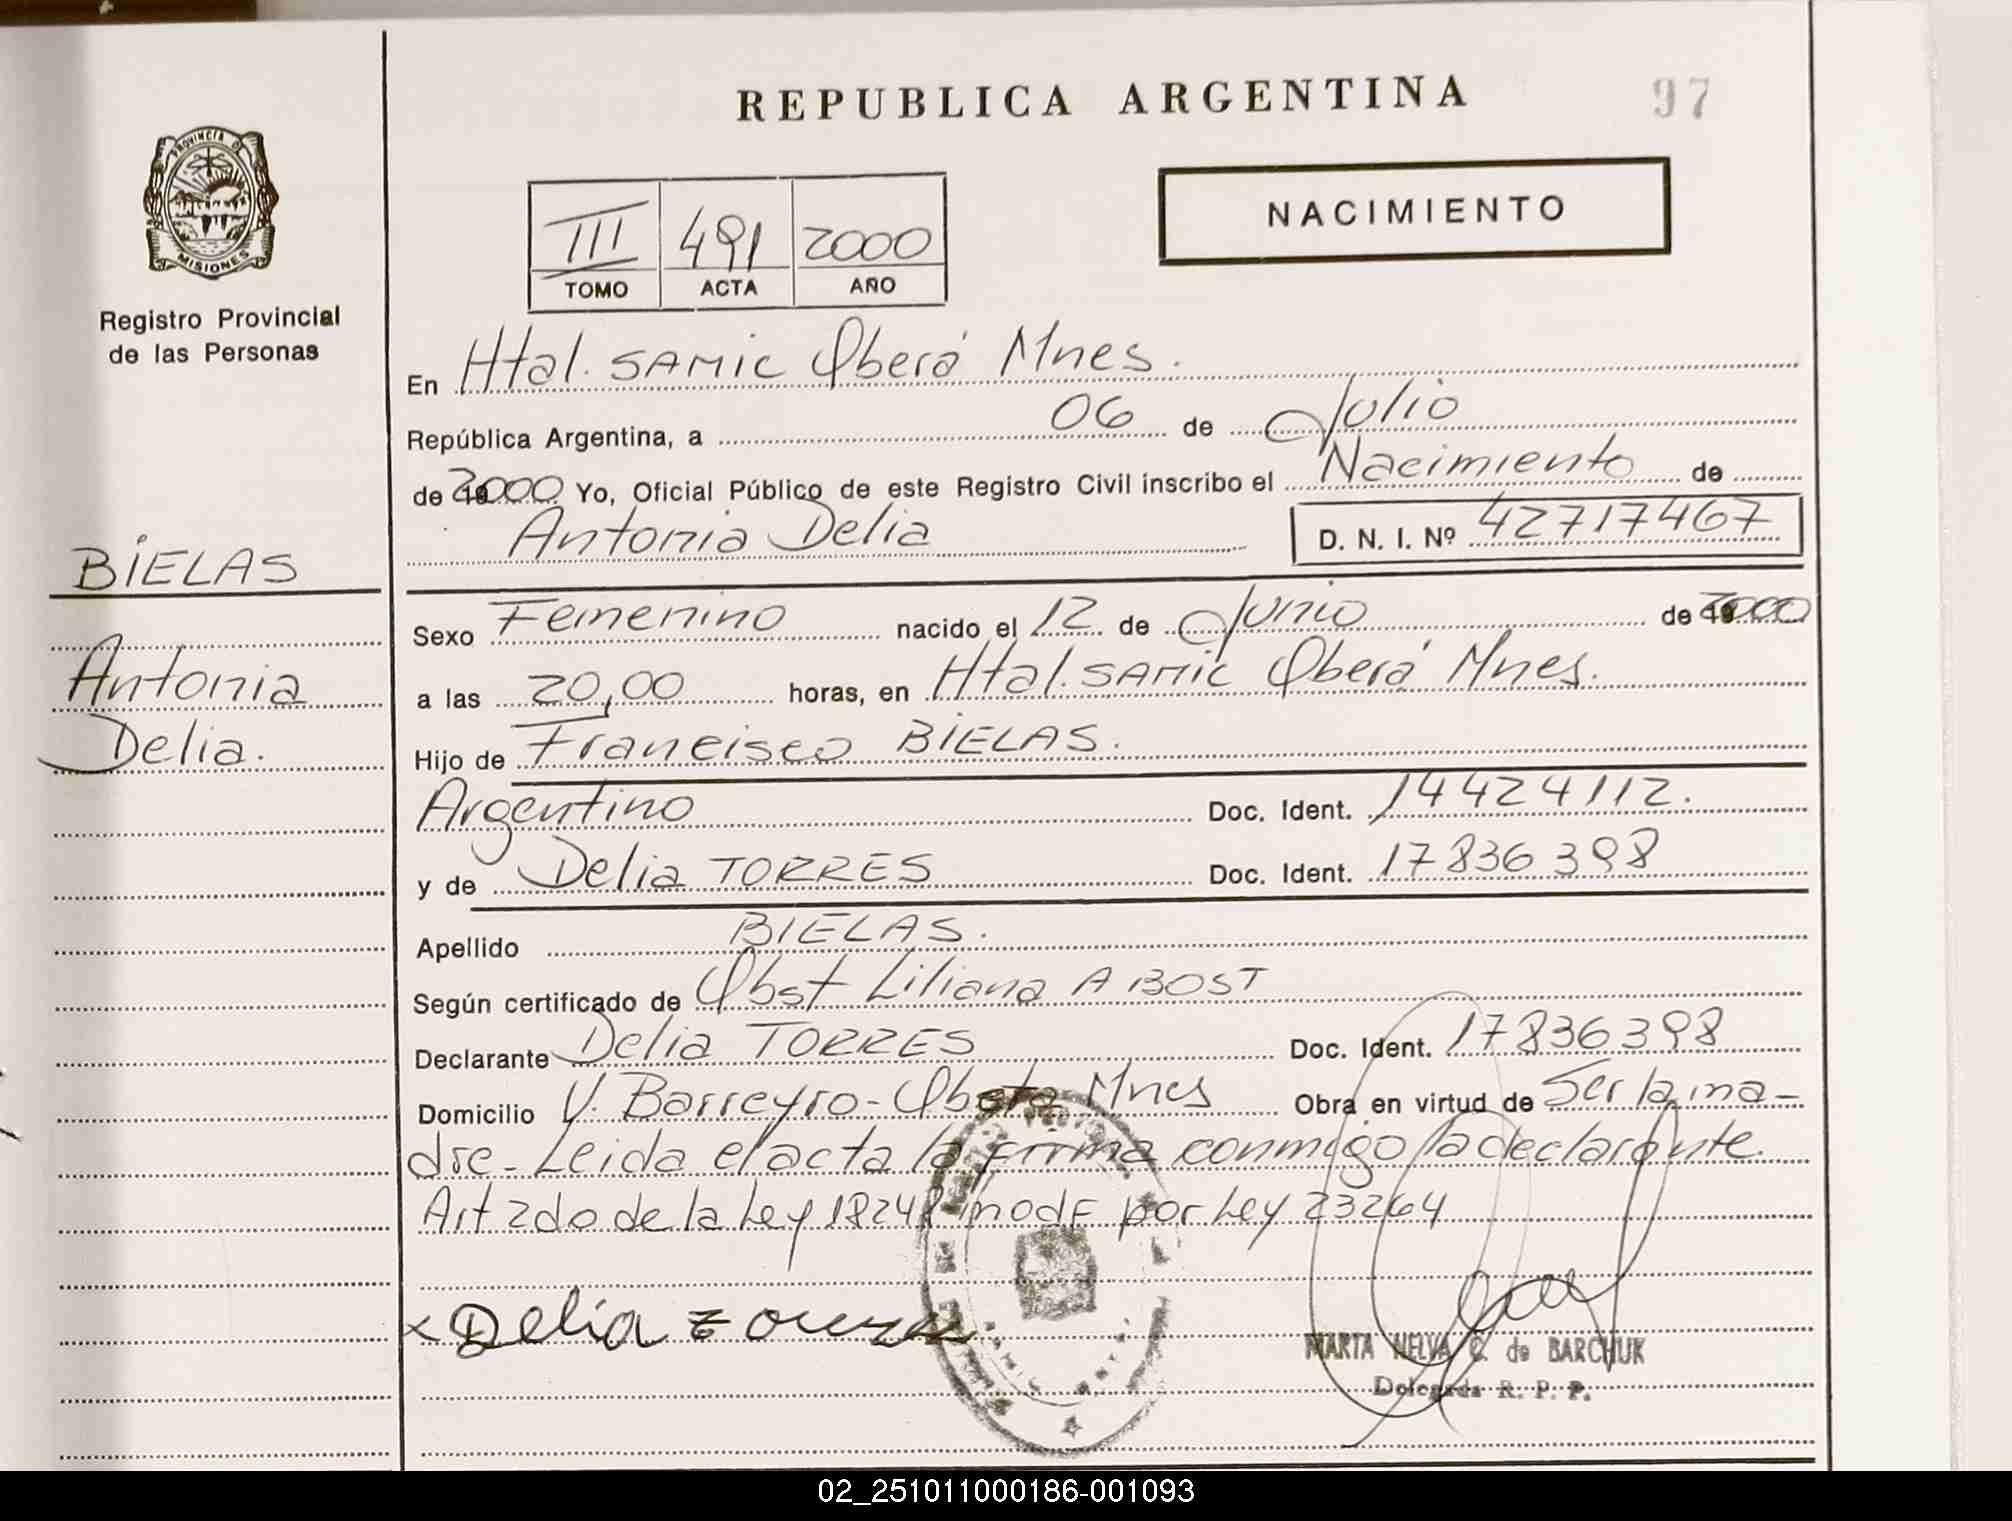 REPUBLICA ARGENTINA
97
PROVINCIA DE
MISIONES
Registro Provincial
de las Personas
III 491 2000
TOMO ACTA AÑO
NACIMIENTO
En Htal. SAMIC Oberá Mnes.
República Argentina, a 06 de Julio
de 2000 Yo, Oficial Público de este Registro Civil inscribo el Nacimiento de
Antonia Delia D. N. I. Nº 42717467
BIELAS
Antonia
Delia.
Sexo Femenino nacido el 12 de Junio de 2000
a las 20,00 horas, en Htal. SAMIC Oberá Mnes.
Hijo de Francisco BIELAS.
Argentino Doc. Ident. 14424112.
y de Delia TORRES Doc. Ident. 17836398
Apellido BIELAS.
Según certificado de Obst Liliana A BOST
Declarante Delia TORRES Doc. Ident. 17836398
Domicilio V. Barreyro - Mnes Obra en virtud de Ser la ma-
dre - Leida el acta la firma conmigo la declarante.
Art 2do de la Ley 18248 modf por Ley 23264
x Delia
MARTA NELVA C. de BARCHUK
Delegada R. P. P.
02_251011000186-001093